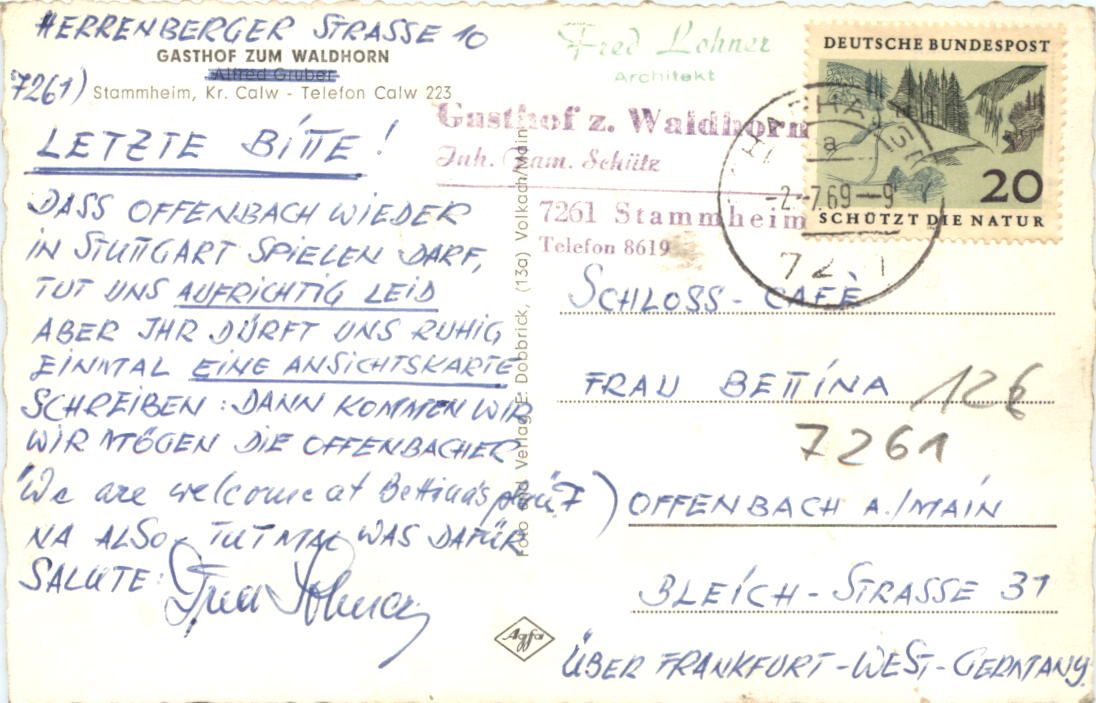 HERRENBERGER STRASSE 10
GASTHOF ZUM WALDHORN
Alfred Gruber
7261)
Stammheim, Kr. Calw - Telefon Calw 223
LETZTE BITTE!
DASS OFFENBACH WIEDER
IN STUTTGART SPIELEN DARF,
TUT UNS AUFRICHTIG LEID
ABER IHR DÜRFT UNS RUHIG
EINMAL EINE ANSICHTSKARTE
SCHREIBEN: DANN KOMMEN WIR
WIR MÖGEN DIE OFFENBACHER
"We are welcome at Bettina's
NA ALSO - TUT MAL WAS DAFÜR
SALUTE:
Fred Lohner
Foto und Verlag E. Dobbrick, (13a) Volkach/Main
Agfa
Fred Lohner
Architekt
Gasthof z. Waldhorn
Inh. Fam. Schütz
7261 Stammheim
Telefon 8619
DEUTSCHE BUNDESPOST
20
SCHÜTZT DIE NATUR
a
-2.-7.69--9
SCHLOSS-CAFÈ
FRAU BETTINA
126
7261
OFFENBACH A./MAIN
BLEICH-STRASSE 31
ÜBER FRANKFURT-WEST-GERMANY